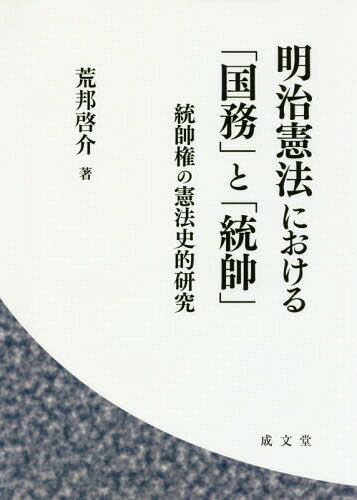 明治憲法における
「国務」と「統帥」
統帥権の憲法史的研究
荒邦啓介 著
成文堂